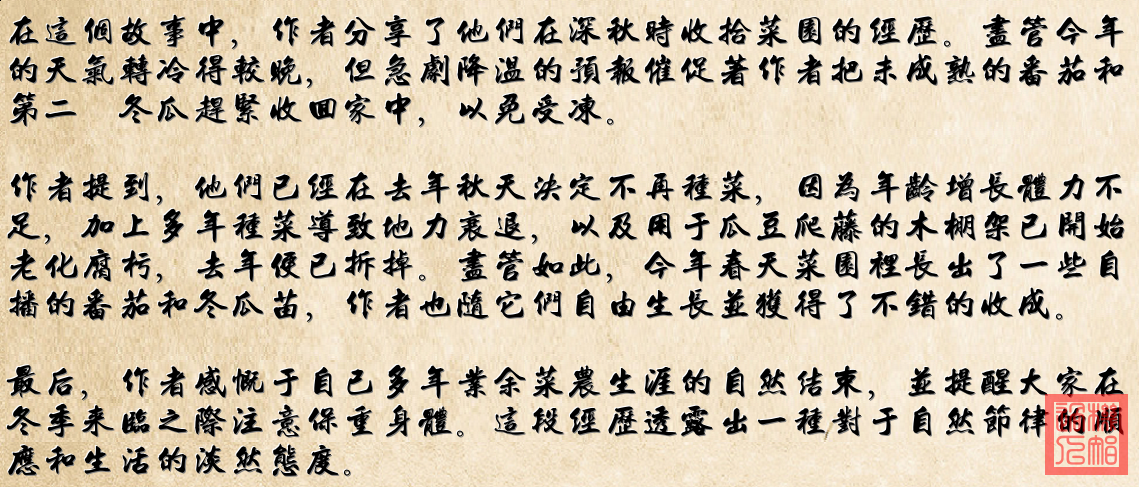 在這個故事中，作者分享了他們在深秋時收拾菜園的經歷。盡管今年
的天氣轉冷得較晚，但急劇降溫的預報催促著作者把未成熟的番茄和
第二　冬瓜趕緊收回家中，以免受凍。
作者提到，他們已經在去年秋天決定不再種菜，因為年齡增長體力不
足，加上多年種菜導致地力衰退，以及用于瓜豆爬藤的木棚架已開始
老化腐朽，去年便已拆掉。盡管如此，今年春天菜園裡長出了一些自
播的番茄和冬瓜苗，作者也隨它們自由生長並獲得了不錯的收成。
最后，作者感慨于自己多年業余菜農生涯的自然結束，並提醒大家在
冬季来臨之際注意保重身體。這段經歷透露出一種對于自然節律的順
應和生活的淡然態度。